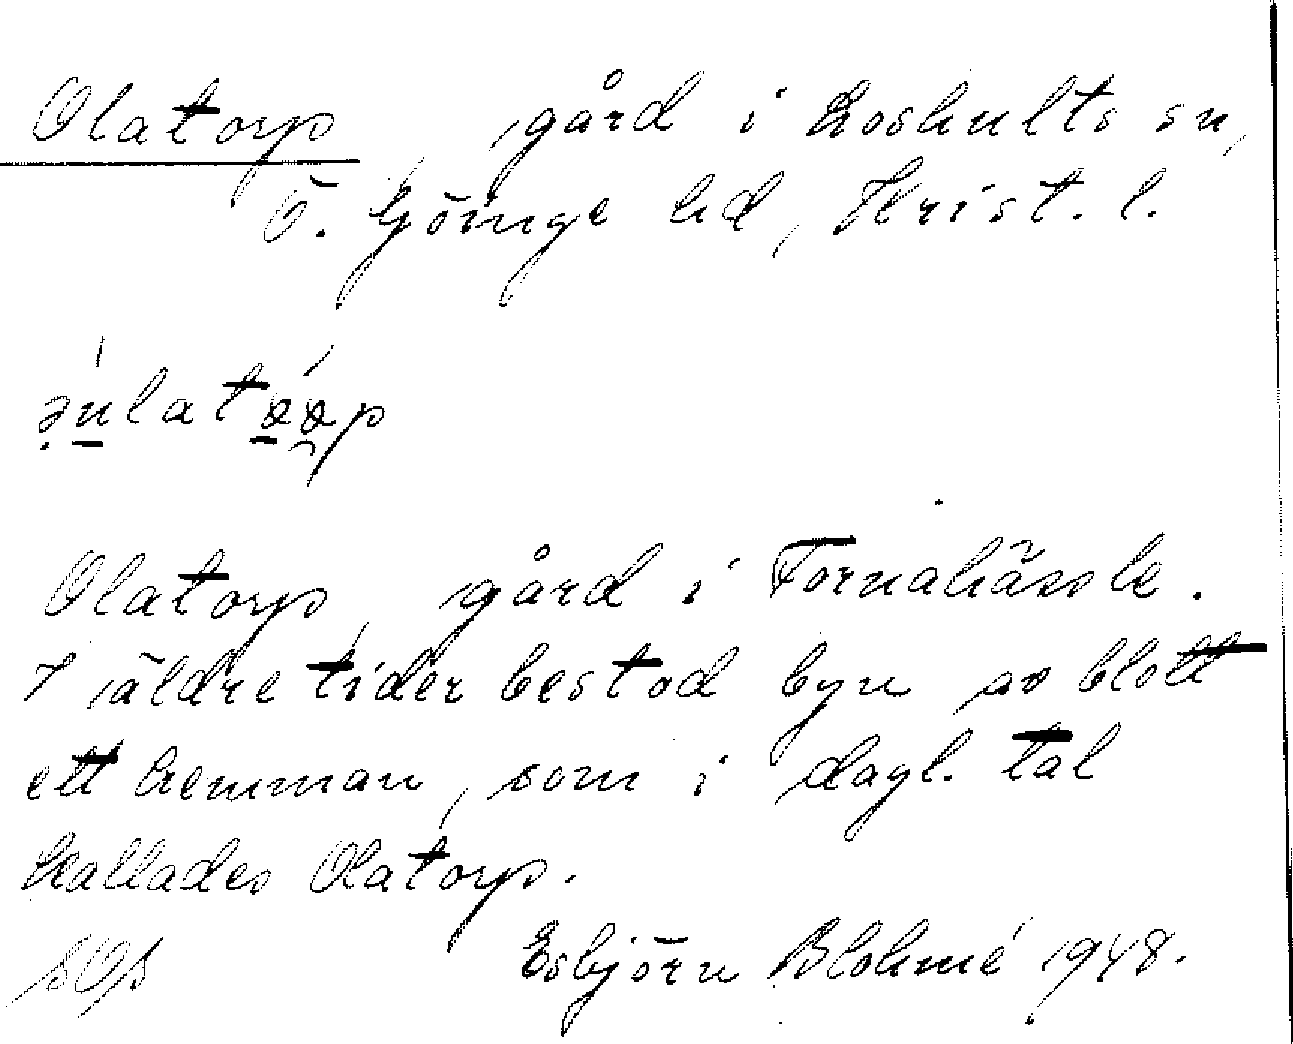 Olatorp, gård i Loshults sn,
Ö. Göinge hd, Krist. l.
Olatorp, gård i Tornahässle.
I äldre tider bestod byn av blott
ett hemman, som i dagl. tal
kallades Olatorp.
Esbjörn Blohmé 1948.